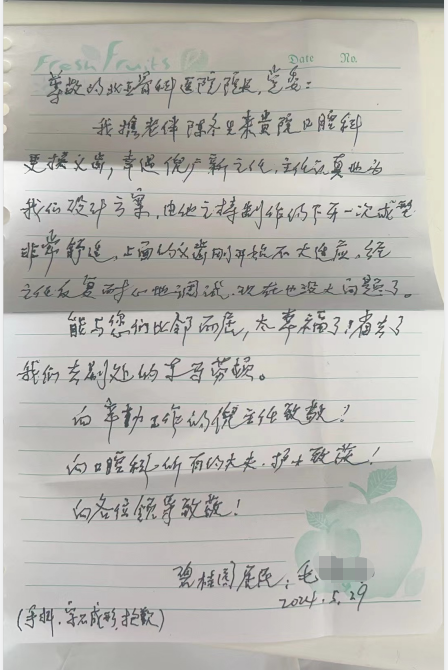 Fresh Fruits
Date No.
尊敬的北亚骨科医院院长,党委:
我携老伴陈冬生来贵院口腔科
更换义齿,幸遇倪广新主任,主任认真地为
我们设计方案,由他主持制作的下牙一次成型
非常舒适,上面的义齿刚开始不大适应,经
主任反复耐心地调试,现在也没大问题了。
能与您们比邻而居,太幸福了!省去了
我们去别处的车马劳顿。
向辛勤工作的倪主任致敬!
向口腔科所有的大夫、护士致敬!
向各位领导致敬!
碧桂园居民:毛
2024.5.29
(手抖,字不成形,抱歉)